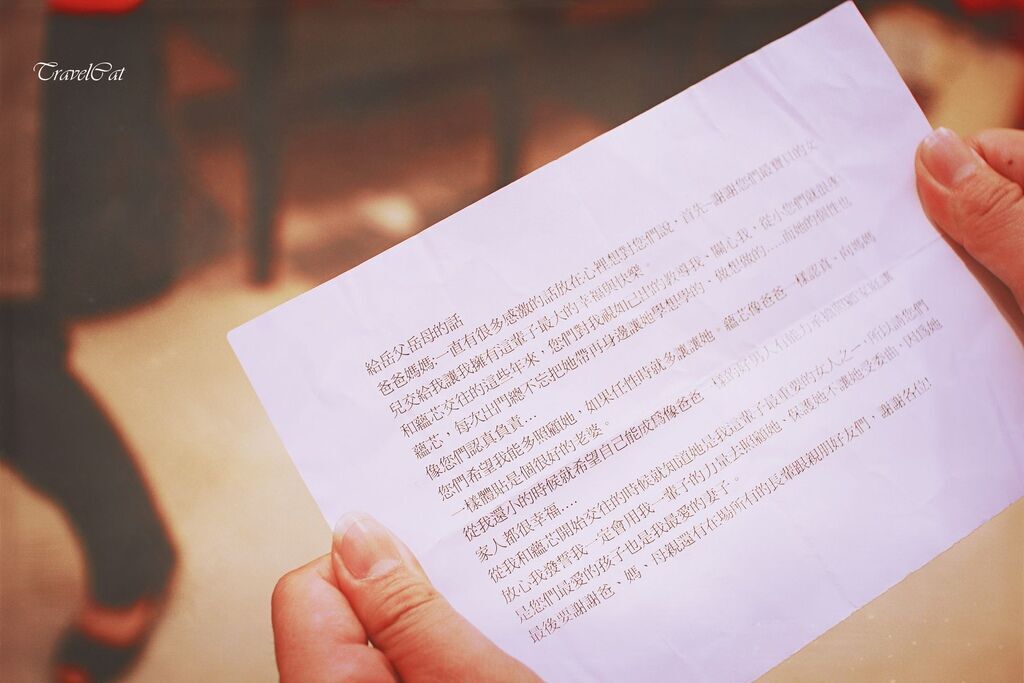 TravelCat
給岳父岳母的話
爸爸媽媽一直有很多感激的話放在心裡想對您們說，首先~謝謝您們最寶貝的女
兒交給我讓我擁有這輩子最大的幸福與快樂。
和蘊芯交往的這些年來，您們對我就如己出的教導我、關心我，從小您們就很疼
蘊芯，每次出門總不忘把她帶再身邊讓她學想學的、做想做的.....而她的個性也
像您們認真負責...
您們希望我能多照顧她，如果任性時就多讓讓她。蘊芯像爸爸一樣認真，向媽媽
一樣體貼是個很好的老婆。
從我還小的時候就希望自己能成為像爸爸一樣的好男人有能力承擔照顧家庭讓
家人都很幸福....
從我和蘊芯開始交往的時候就知道她是我這輩子最重要的女人之一，所以請您們
放心我發誓我一定會用我一輩子的力量去照顧她、保護她不讓她受委曲，因為她
是您們最愛的孩子也是我最愛的妻子。
最後要謝謝爸、媽、母親還有在場所有的長輩跟親朋好友們，謝謝各位!